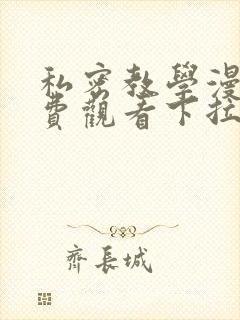 私密教學漫
費觀看下拉
齊長城